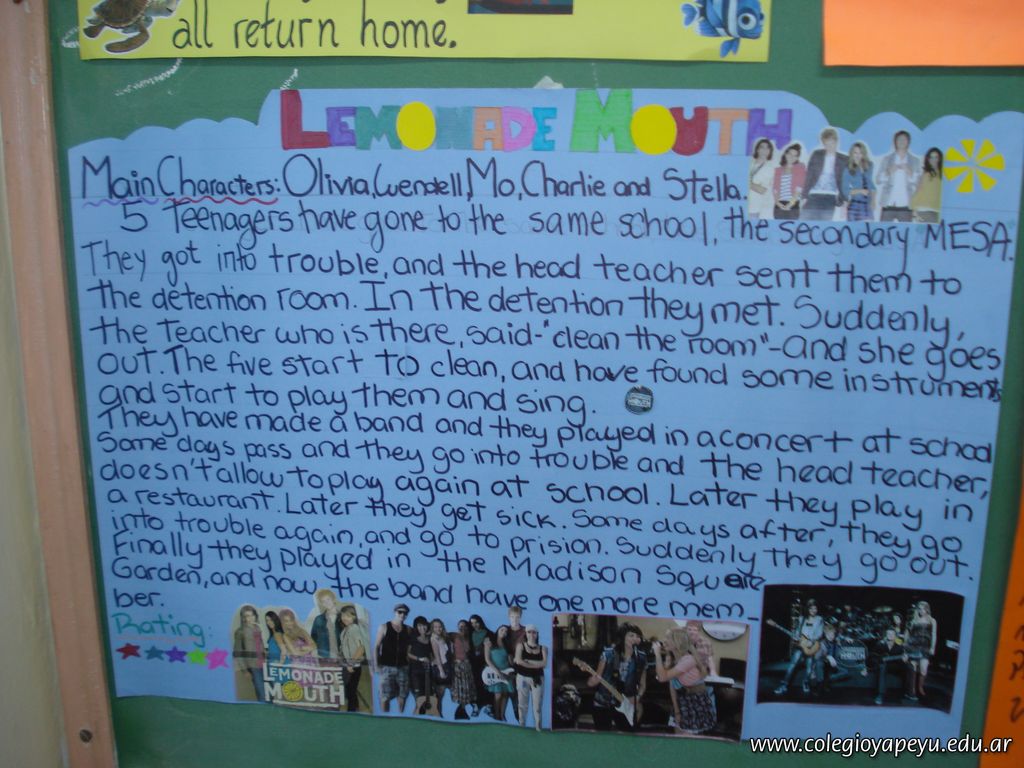 all return home.
LEMONADE MOUTH
Main Characters: Olivia, Wendell, Mo, Charlie and Stella.
5 Teenagers have gone to the same school, the secondary MESA.
They got into trouble, and the head teacher sent them to
the detention room. In the detention they met. Suddenly,
the Teacher who is there, said-"clean the room"-and she goes
out. The five start to clean, and have found some instruments
and start to play them and sing.
They have made a band and they played in a concert at school
Some days pass and they go into trouble and the head teacher,
doesn't allow to play again at school. Later they play in
a restaurant. Later they get sick. Some days after, they go
into trouble again, and go to prision. Suddenly they go out.
Finally they played in the Madison Square
Garden, and now the band have one more mem_
ber.
Rating:
LEMONADE
MOUTH
www.colegioyapeyu.edu.ar